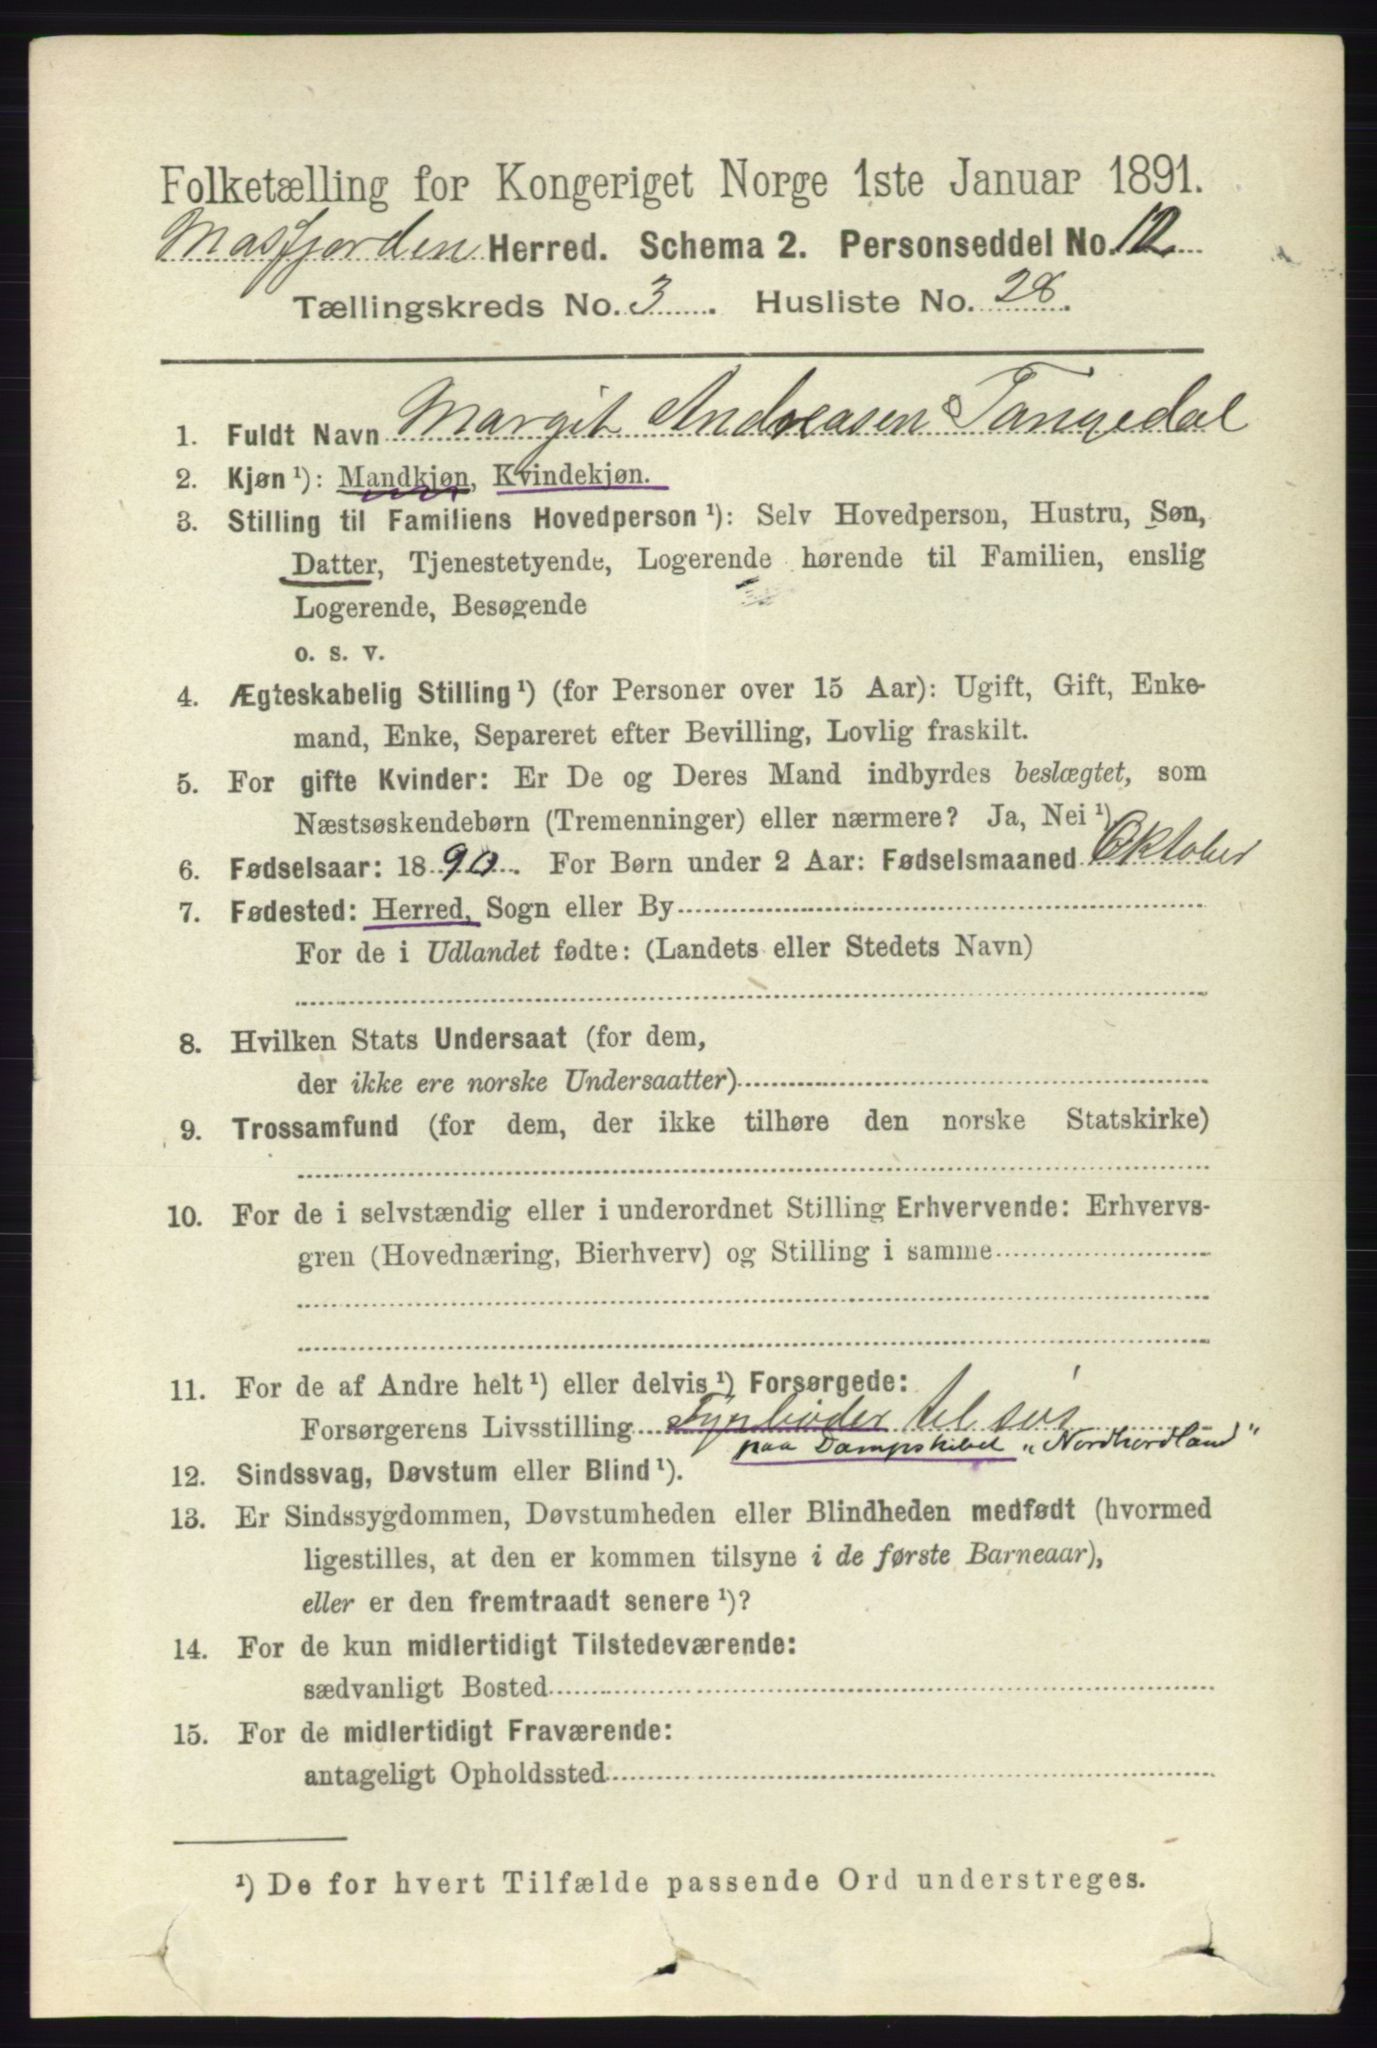 Folketælling for Kongeriget Norge 1ste Januar 1891.
Masfjorden Herred. Schema 2. Personseddel No. 12
Tællingskreds No. 3. Husliste No. 28.
1. Fuldt Navn Margit Andreasen Tangedal
2. Kjøn ¹): Mandkjøn, Kvindekjøn.
3. Stilling til Familiens Hovedperson ¹): Selv Hovedperson, Hustru, Søn,
Datter, Tjenestetyende, Logerende hørende til Familien, enslig
Logerende, Besøgende
o. s. v.
4. Ægteskabelig Stilling ¹) (for Personer over 15 Aar): Ugift, Gift, Enke-
mand, Enke, Separeret efter Bevilling, Lovlig fraskilt.
5. For gifte Kvinder: Er De og Deres Mand indbyrdes beslægtet, som
Næstsøskendebørn (Tremenninger) eller nærmere? Ja, Nei ¹)
6. Fødselsaar: 1890. For Børn under 2 Aar: Fødselsmaaned Oktober
7. Fødested: Herred, Sogn eller By
For de i Udlandet fødte: (Landets eller Stedets Navn)
8. Hvilken Stats Undersaat (for dem,
der ikke ere norske Undersaatter)
9. Trossamfund (for dem, der ikke tilhøre den norske Statskirke)
10. For de i selvstændig eller i underordnet Stilling Erhvervende: Erhvervs-
gren (Hovednæring, Bierhverv) og Stilling i samme
11. For de af Andre helt ¹) eller delvis ¹) Forsørgede:
Forsørgerens Livsstilling Fyrbøder til søs
paa Dampskibet „Nordhordland"
12. Sindssvag, Døvstum eller Blind ¹).
13. Er Sindssygdommen, Døvstumheden eller Blindheden medfødt (hvormed
ligestilles, at den er kommen tilsyne i de første Barneaar),
eller er den fremtraadt senere ¹)?
14. For de kun midlertidigt Tilstedeværende:
sædvanligt Bosted
15. For de midlertidigt Fraværende:
antageligt Opholdssted
¹) De for hvert Tilfælde passende Ord understreges.